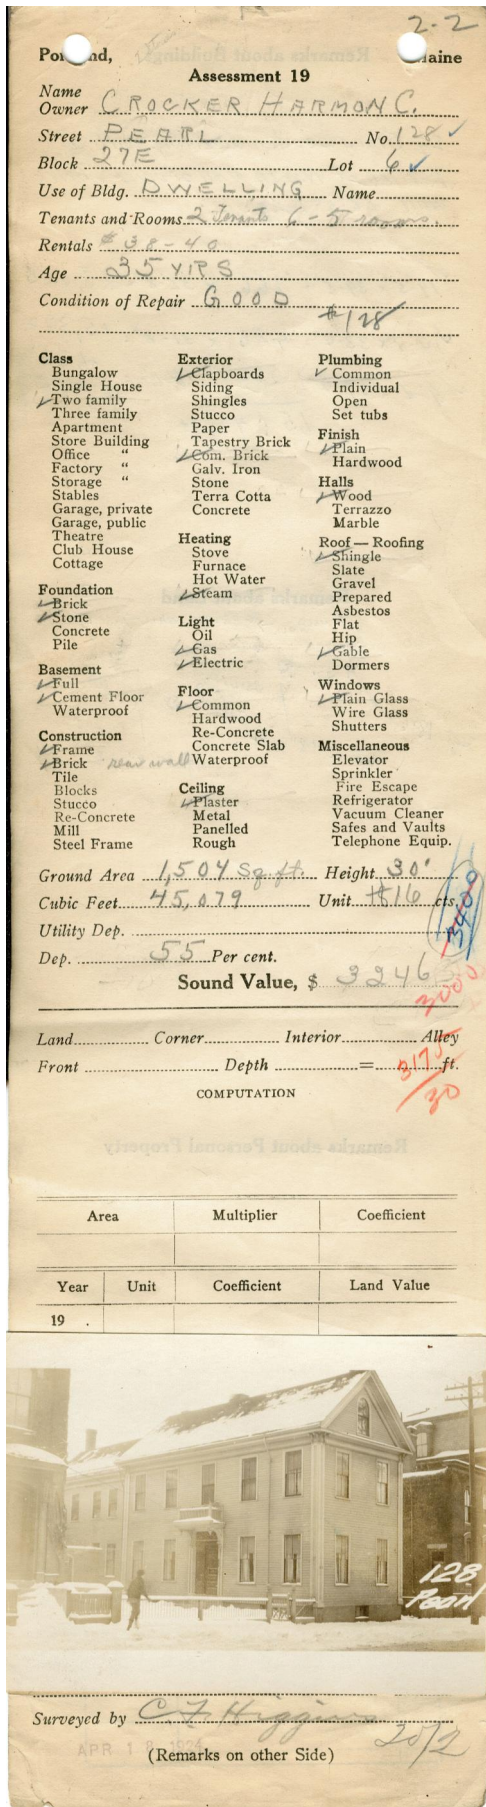 2-2
Portland, Maine
Assessment 19
Name
Owner CROCKER HARMON C.
Street PEARL No. 128 ✓
Block 27E Lot 6 ✓
Use of Bldg. DWELLING Name
Tenants and Rooms 2 Tenants 6-5 rooms.
Rentals $38-40
Age 35 YRS
Condition of Repair GOOD
$128
Class
Bungalow
Single House
✓ Two family
Three family
Apartment
Store Building
Office "
Factory "
Storage "
Stables
Garage, private
Garage, public
Theatre
Club House
Cottage
Foundation
✓ Brick
✓ Stone
Concrete
Pile
Basement
✓ Full
✓ Cement Floor
Waterproof
Construction
✓ Frame
✓ Brick rear wall
Tile
Blocks
Stucco
Re-Concrete
Mill
Steel Frame
Exterior
✓ Clapboards
Siding
Shingles
Stucco
Paper
Tapestry Brick
✓ Com. Brick
Galv. Iron
Stone
Terra Cotta
Concrete
Heating
Stove
Furnace
Hot Water
✓ Steam
Light
Oil
✓ Gas
✓ Electric
Floor
✓ Common
Hardwood
Re-Concrete
Concrete Slab
Waterproof
Ceiling
✓ Plaster
Metal
Panelled
Rough
Plumbing
✓ Common
Individual
Open
Set tubs
Finish
✓ Plain
Hardwood
Halls
✓ Wood
Terrazzo
Marble
Roof — Roofing
✓ Shingle
Slate
Gravel
Prepared
Asbestos
Flat
Hip
✓ Gable
Dormers
Windows
✓ Plain Glass
Wire Glass
Shutters
Miscellaneous
Elevator
Sprinkler
Fire Escape
Refrigerator
Vacuum Cleaner
Safes and Vaults
Telephone Equip.
Ground Area 1,504 Sq. ft. Height 30'
Cubic Feet 45,079 Unit $16 cts.
3400
Utility Dep.
Dep. 55 Per cent.
Sound Value, $ 3246
3000
Land Corner Interior Alley
Front Depth = ft.
3175
/30
COMPUTATION
Area Multiplier Coefficient
Year Unit Coefficient Land Value
19 .
128
Pearl
Surveyed by C. F. Higgins
APR 18 1924
20/2
(Remarks on other Side)